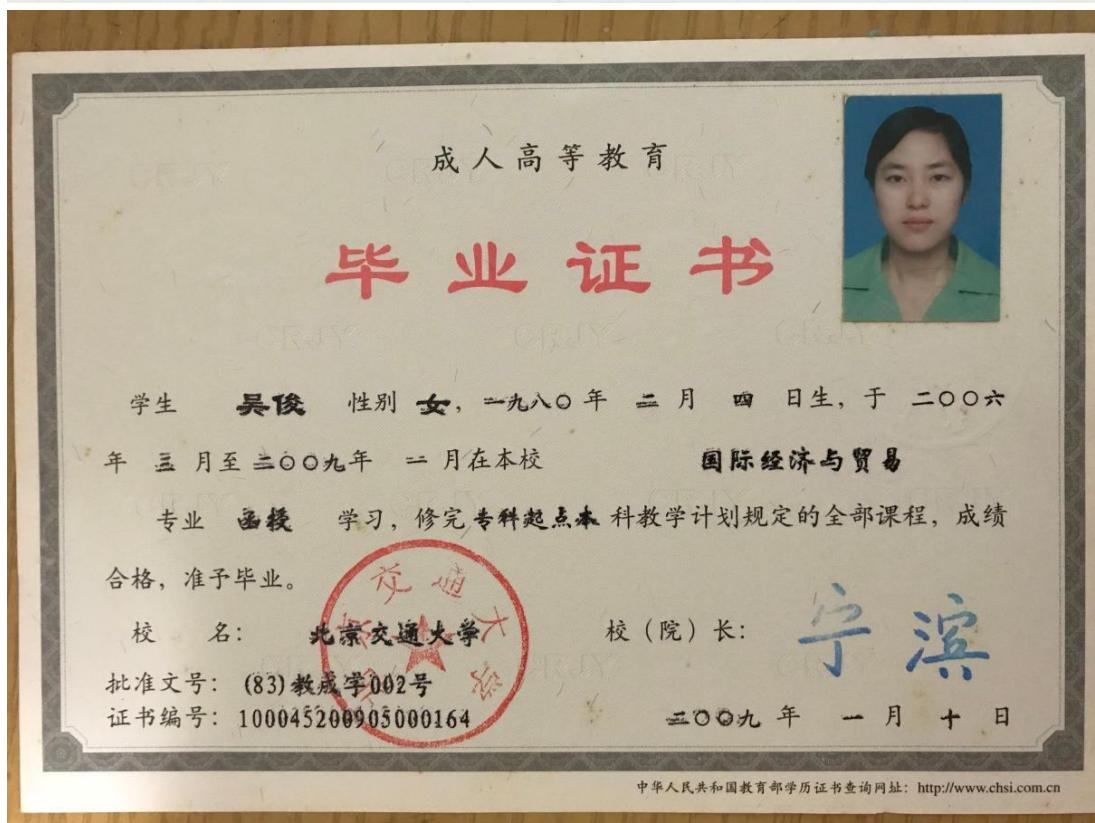 成人高等教育
毕业证书
学生 吴俊 性别 女，一九八〇年 二月 四 日生，于 二〇〇六
年 三 月至二〇〇九年 一 月在本校 国际经济与贸易
专业 函授 学习，修完专科起点本科教学计划规定的全部课程，成绩
合格，准予毕业。
校 名： 北京交通大学 校（院）长： 宁滨
批准文号： (83)教成学002号
证书编号： 100045200905000164 二〇〇九 年 一 月 十 日
北京交通大学
中华人民共和国教育部学历证书查询网址： http://www.chsi.com.cn